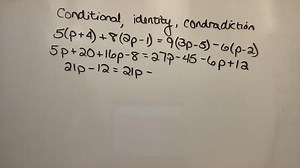 Conditional, identity, condradiction
5(p+4) + 8(2p-1) = 9(3p-5) - 6(p-2)
5p+20+16p-8 = 27p-45-6p+12
21p-12 = 21p -